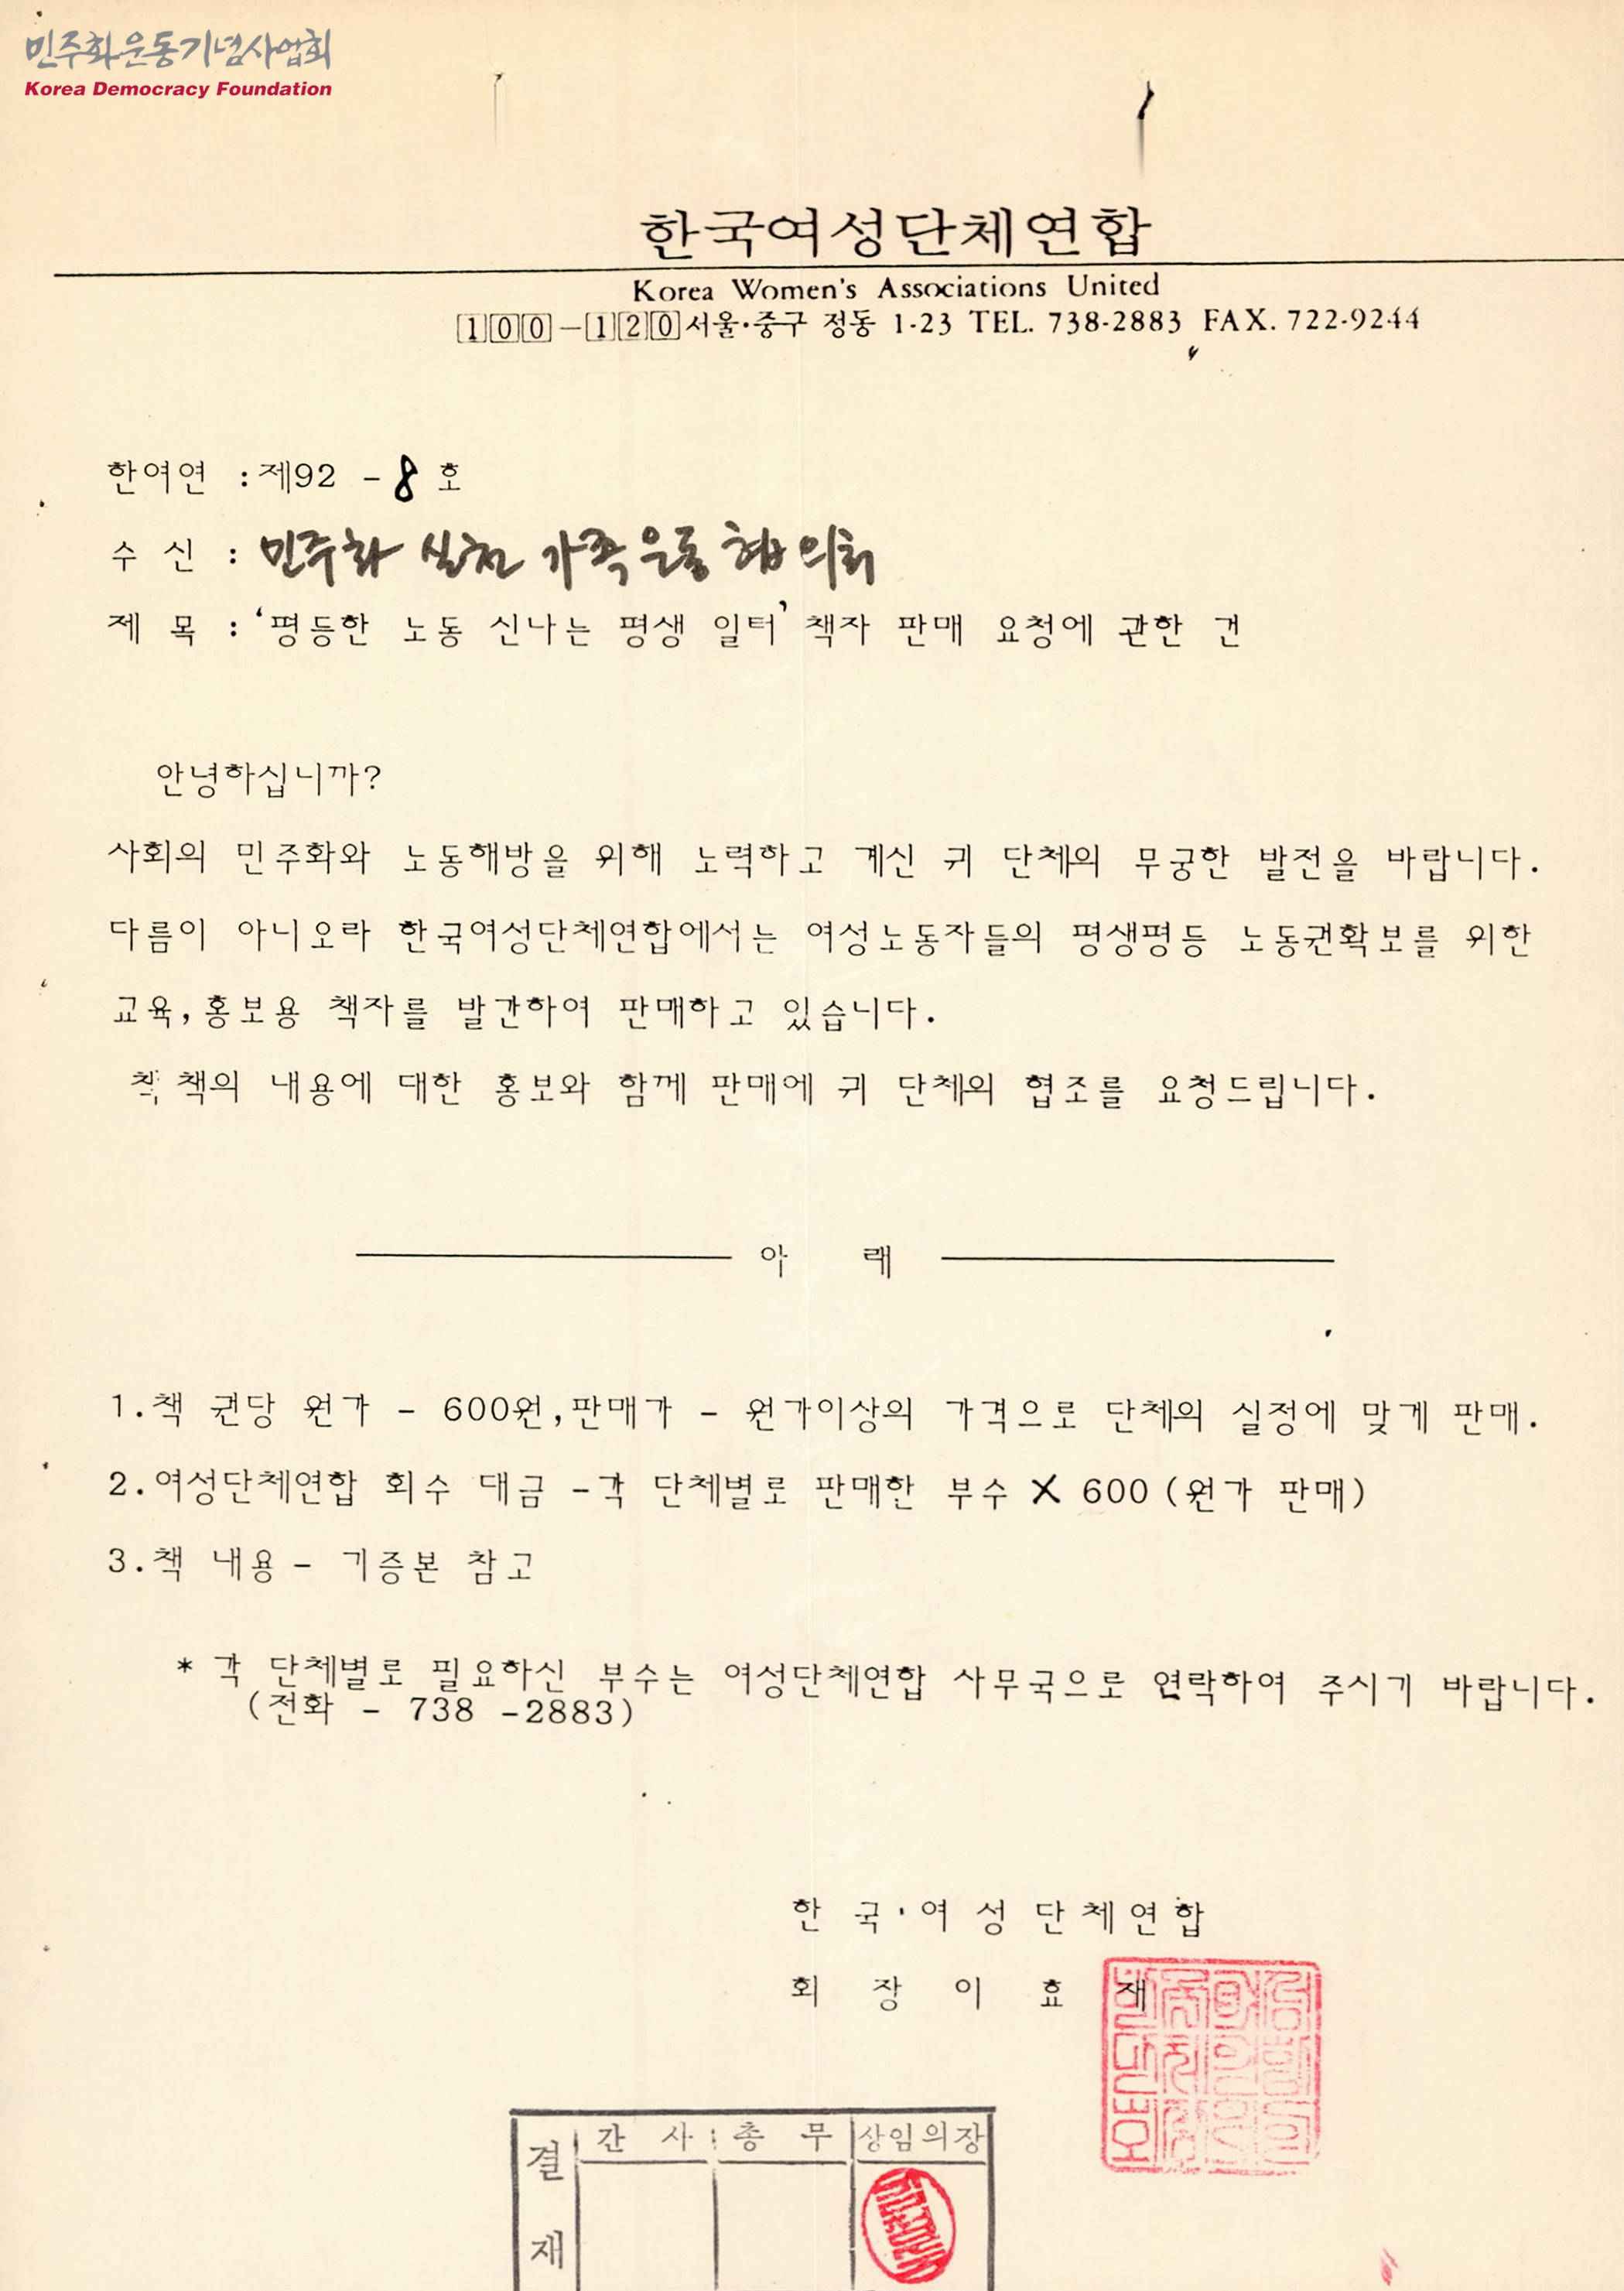 민주화운동기념사업회
Korea Democracy Foundation
한국여성단체연합
Korea Women's Associations United
100-120 서울·중구 정동 1-23 TEL. 738-2883 FAX. 722-9244
한여연 :제92 -8 호
수 신 : 민주화 실천 가족 운동 협의회
제 목 : '평등한 노동 신나는 평생 일터' 책자 판매 요청에 관한 건
안녕하십니까?
사회의 민주화와 노동해방을 위해 노력하고 계신 귀 단체의 무궁한 발전을 바랍니다.
다름이 아니오라 한국여성단체연합에서는 여성노동자들의 평생평등 노동권확보를 위한
교육,홍보용 책자를 발간하여 판매하고 있습니다.
책의 내용에 대한 홍보와 함께 판매에 귀 단체의 협조를 요청드립니다.
아 래
1.책 권당 원가 - 600원,판매가 - 원가이상의 가격으로 단체의 실정에 맞게 판매.
2.여성단체연합 회수 대금 -각 단체별로 판매한 부수 X 600 (원가 판매)
3.책 내용 - 기증본 참고
* 각 단체별로 필요하신 부수는 여성단체연합 사무국으로 연락하여 주시기 바랍니다.
(전화 - 738 -2883)
한 국 여 성 단 체 연 합
회 장 이 효 재
결 재 간 사 총 무 상임의장